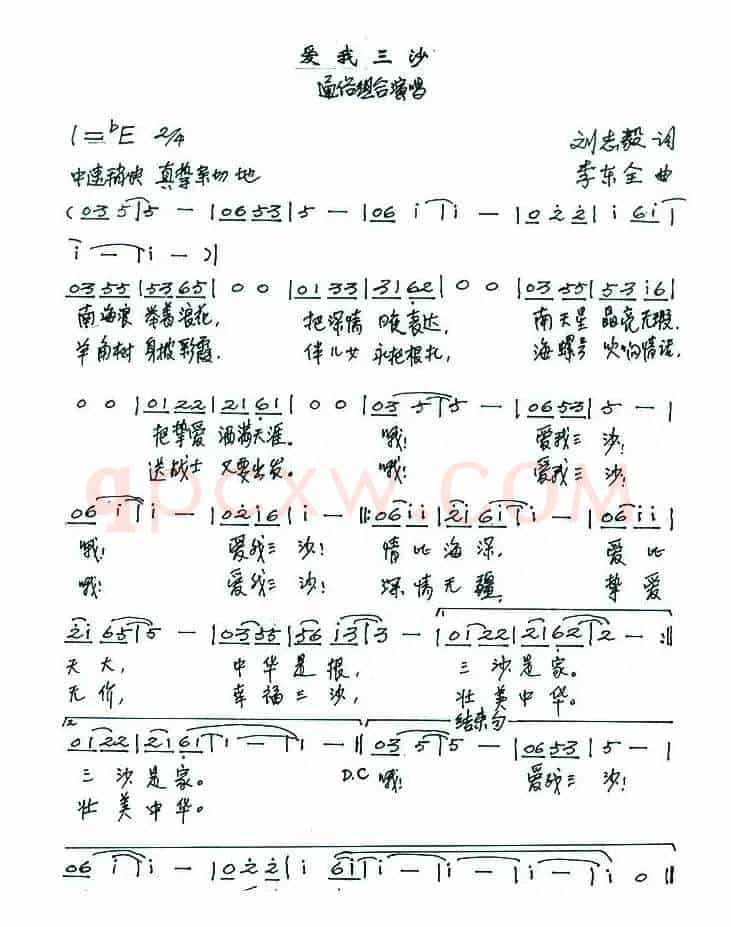 爱我三沙
通俗组合演唱
1=♭E 2/4 刘志毅 词
中速稍快 真挚亲切地 李东全 曲
(035|5 -|0653|5 -|06 i|i -|02̇2̇|i 6i|
i -|i -)|
0355|5365|0 0|0133|3162|0 0|0355|53i6|
南海浪 举着浪花, 把深情 表达, 南天星 晶亮无瑕.
羊角树 身披彩霞. 伴儿女 永把根扎, 海螺号 吹响情话.
0 0|0122|2161|0 0|03 5|5 -|0653|5 -|
把挚爱 洒满天涯。 哦! 爱我三 沙!
送战士 又要出发。 哦! 爱我三 沙!
qpcxw.COM
06 i|i -|02̇i6|i -‖:06ii|2̇i6i|i -|06ii|
哦! 爱我三 沙! 情比海深, 爱比
哦! 爱我三 沙! 深情无疆, 挚爱
2̇i65|5 -|0355|56i3|3 -|0122|2162|2 -:‖
天大, 中华是根, 三沙是家。
无价, 幸福三沙, 壮美中华。
结束句
2
0122|2161|1 -|1 -‖03 5|5 -|0653|5 -|
三沙是家。 D.C 哦! 爱我三 沙!
壮美中华。
06 i|i -|02̇2̇|i 6i|i -|i -|i -|i 0‖